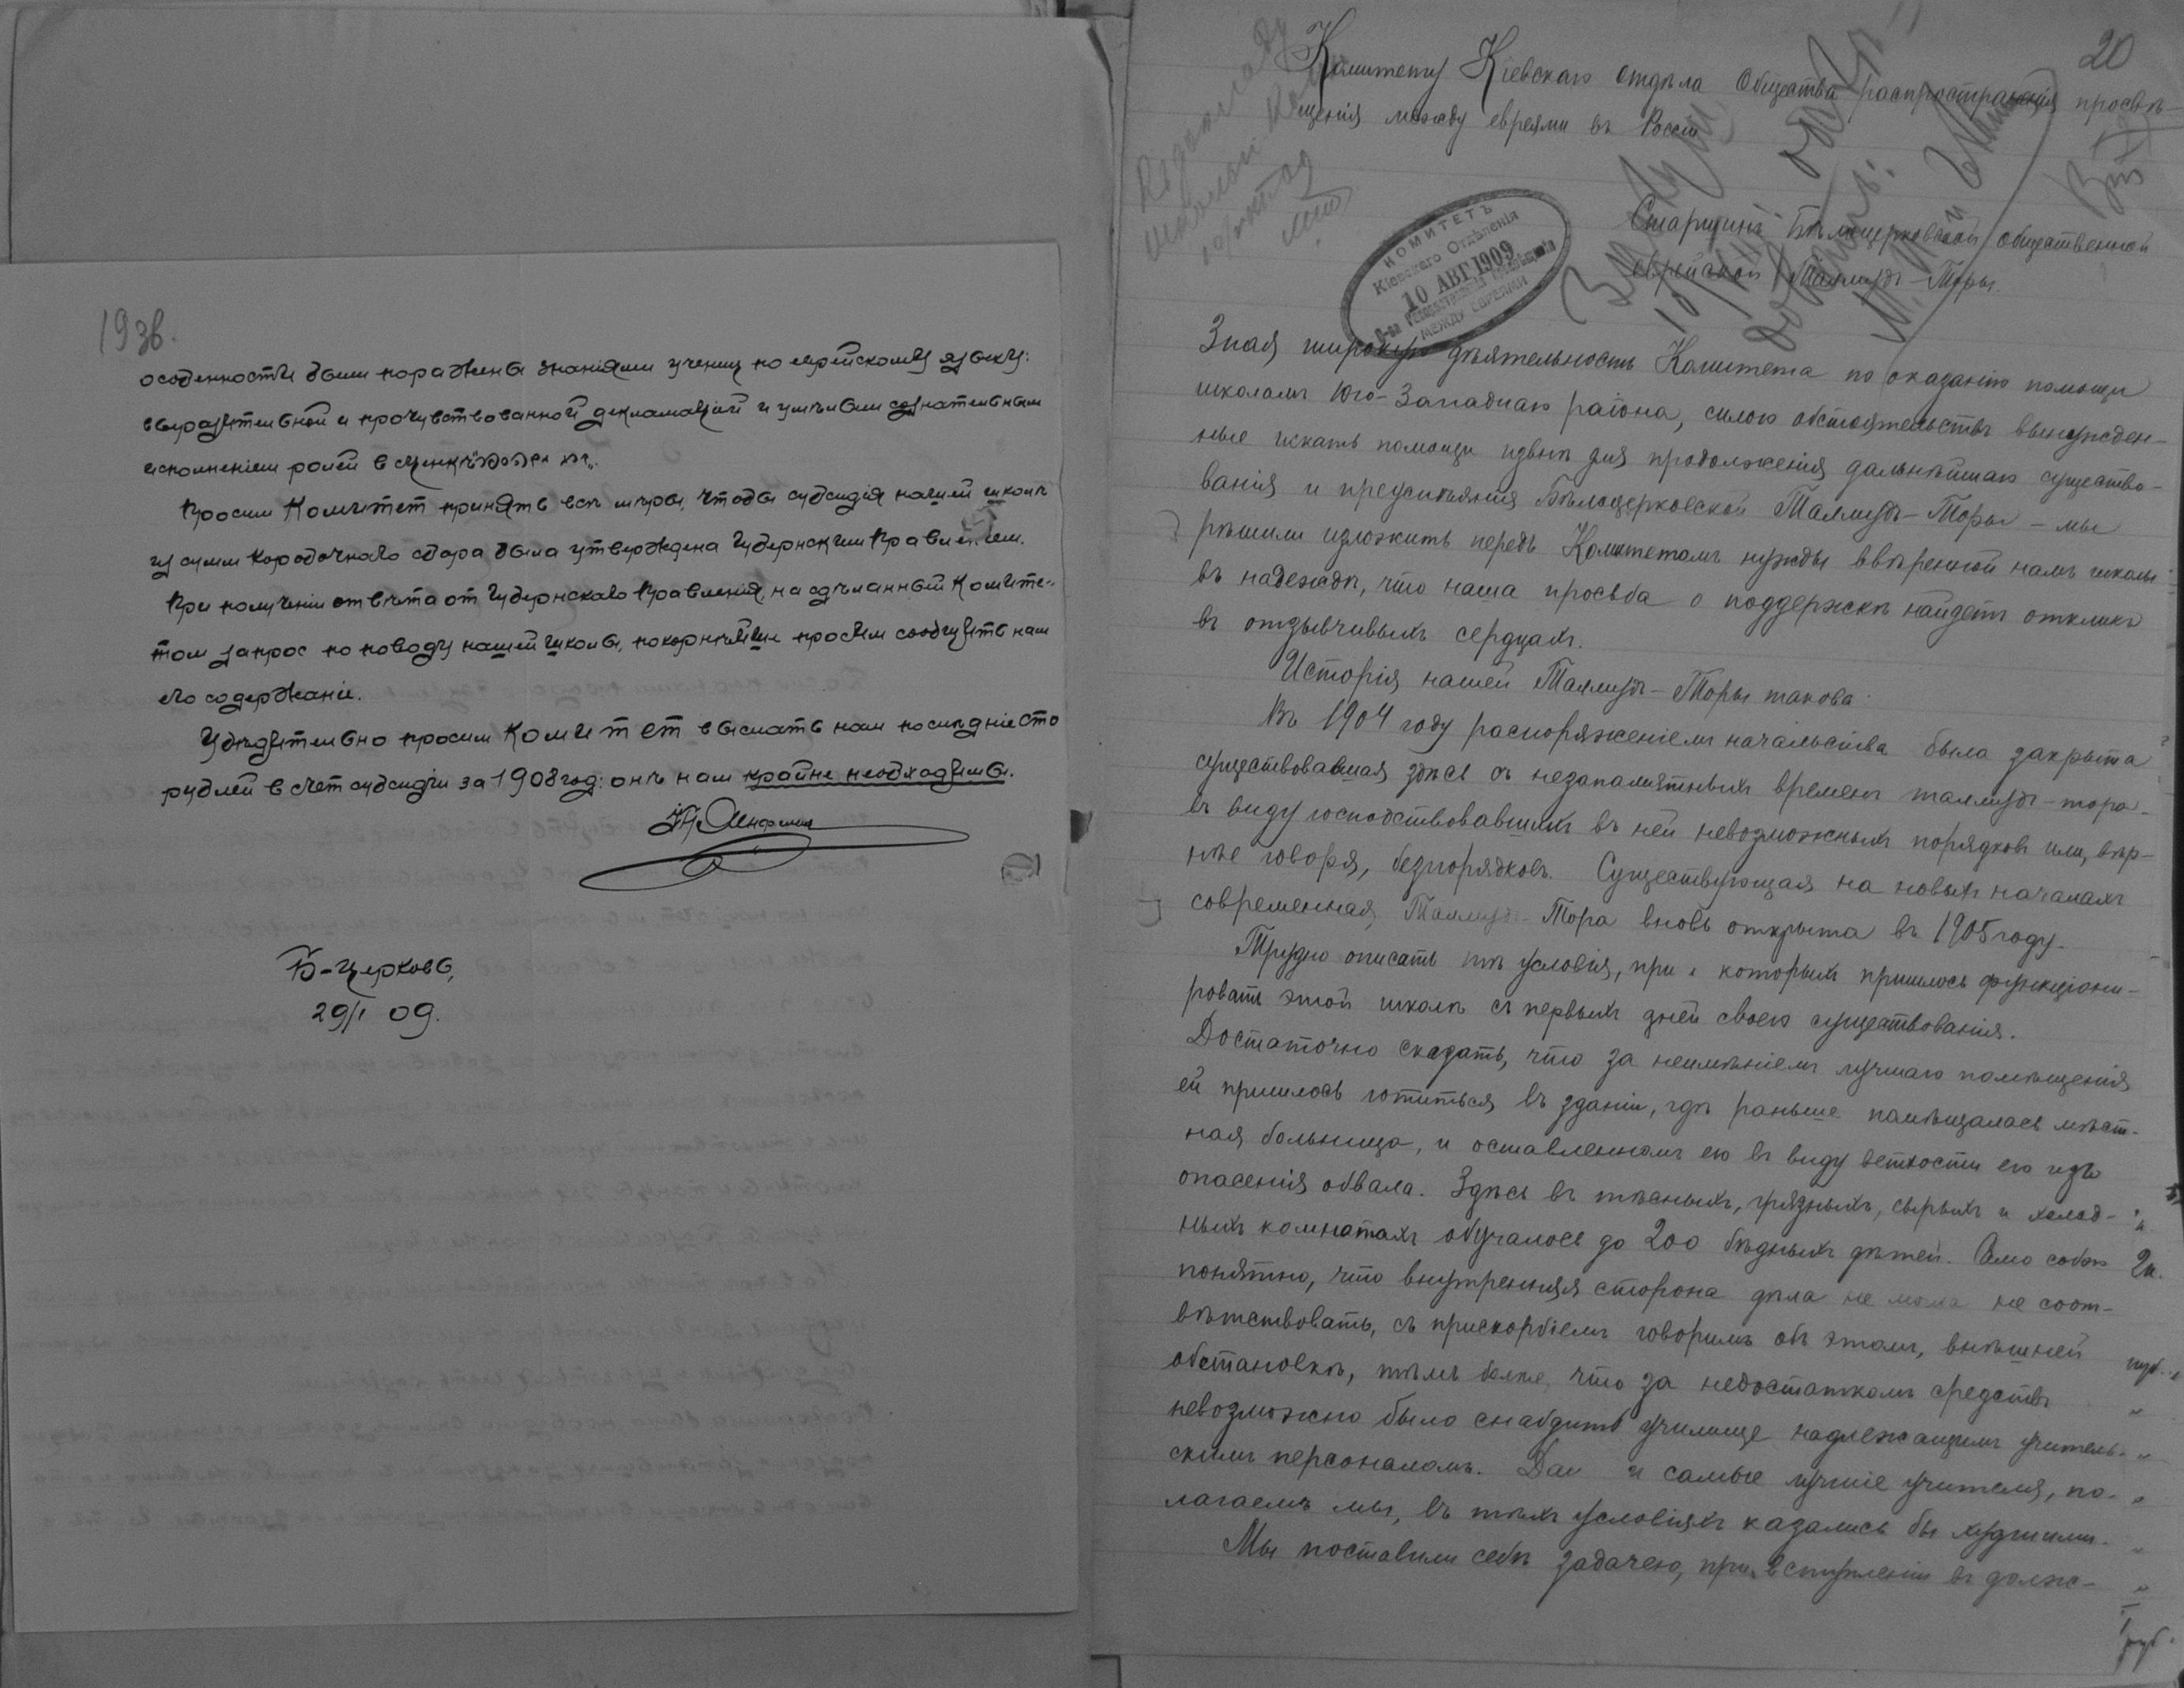 193б.
особенности были поражены знаніями учениц по еврейскому языку:
выразительной и прочувствованной декламаціей и умѣлым сознательным
исполненіем ролей в сценкѣ
Просим Комитет принять всѣ мѣры, чтобы субсидія нашей школѣ
из сумм коробочнаго сбора была утверждена Губернским Правленіем.
При полученіи отвѣта от Губернскаго Правленія, на сдѣланный Комите-
том запрос по поводу нашей школы, покорнѣйше просим сообщить нам
его содержаніе.
Убѣдительно просим Комитет выслать нам послѣдніе сто
рублей в счет субсидіи за 1908 год: онѣ нам крайне необходимы.
Б-Церковь,
29/I 09.
20
Комитету Кіевскаго отдѣла Общества распространенія просвѣ-
щенія между евреями въ Россіи
КОМИТЕТЪ
Кіевскаго Отдѣленія
10 АВГ 1909
О-ва Распространенія Просвѣщенія
МЕЖДУ ЕВРЕЯМИ
Старшинъ Бѣлоцерковской общественной
еврейской Талмудъ-Торы.
Зная широкую дѣятельность Комитета по оказанію помощи
школамъ Юго-Западнаго района, силою обстоятельствъ вынужден-
ные искать помощи извнѣ для продолженія дальнѣйшаго существо-
ванія и преуспѣянія Бѣлоцерковской Талмудъ-Торы - мы
рѣшили изложить передъ Комитетомъ нужды ввѣренной намъ школы
въ надеждѣ, что наша просьба о поддержкѣ найдетъ откликъ
въ отзывчивыхъ сердцахъ.
Исторія нашей Талмудъ-Торы такова:
Въ 1904 году распоряженіемъ начальства была закрыта
существовавшая здѣсь съ незапамятныхъ временъ талмудъ-тора
въ виду господствовавшихъ въ ней невозможныхъ порядковъ или, вѣр-
нѣе говоря, безпорядковъ. Существующая на новыхъ началахъ
современная Талмудъ-Тора вновь открыта въ 1905 году.
Трудно описать тѣ условія, при которыхъ пришлось функціони-
ровать этой школѣ съ первыхъ дней своего существованія.
Достаточно сказать, что за неимѣніемъ лучшаго помѣщенія
ей пришлось ютиться въ зданіи, гдѣ раньше помѣщалась мѣст-
ная больница, и оставленномъ ею въ виду ветхости его изъ
опасенія обвала. Здѣсь въ тѣсныхъ, грязныхъ, сырыхъ и холод-
ныхъ комнатахъ обучалось до 200 бѣдныхъ дѣтей. Само собою
понятно, что внутренняя сторона дѣла не могла не соот-
вѣтствовать, съ прискорбіемъ говоримъ объ этомъ, внѣшней
обстановкѣ, тѣмъ болѣе, что за недостаткомъ средствъ
невозможно было снабдить училище надлежащимъ учитель-
скимъ персоналомъ. Да и самые лучшіе учителя, по-
лагаемъ мы, въ тѣхъ условіяхъ казались бы худшими.
Мы поставили себѣ задачею, при вступленіи въ долж-